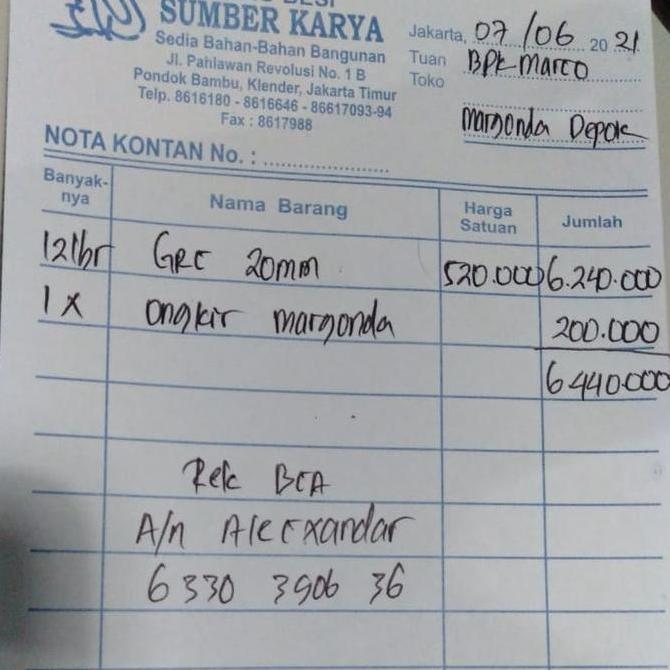 SUMBER KARYA
Sedia Bahan-Bahan Bangunan
Jl. Pahlawan Revolusi No. 1 B
Pondok Bambu, Klender, Jakarta Timur
Telp. 8616180 - 8616646 - 86617093-94
Fax : 8617988
Jakarta, 07/06 2021
Tuan BPK Marco
Toko
Margonda Depok
NOTA KONTAN No. :
Banyaknya Nama Barang Harga Satuan Jumlah
12 lbr GRC 20mm 520.000 6.240.000
1 x ongkir margonda 200.000
6.440.000
Rek BCA
A/n Alecxandar
6330 3906 36